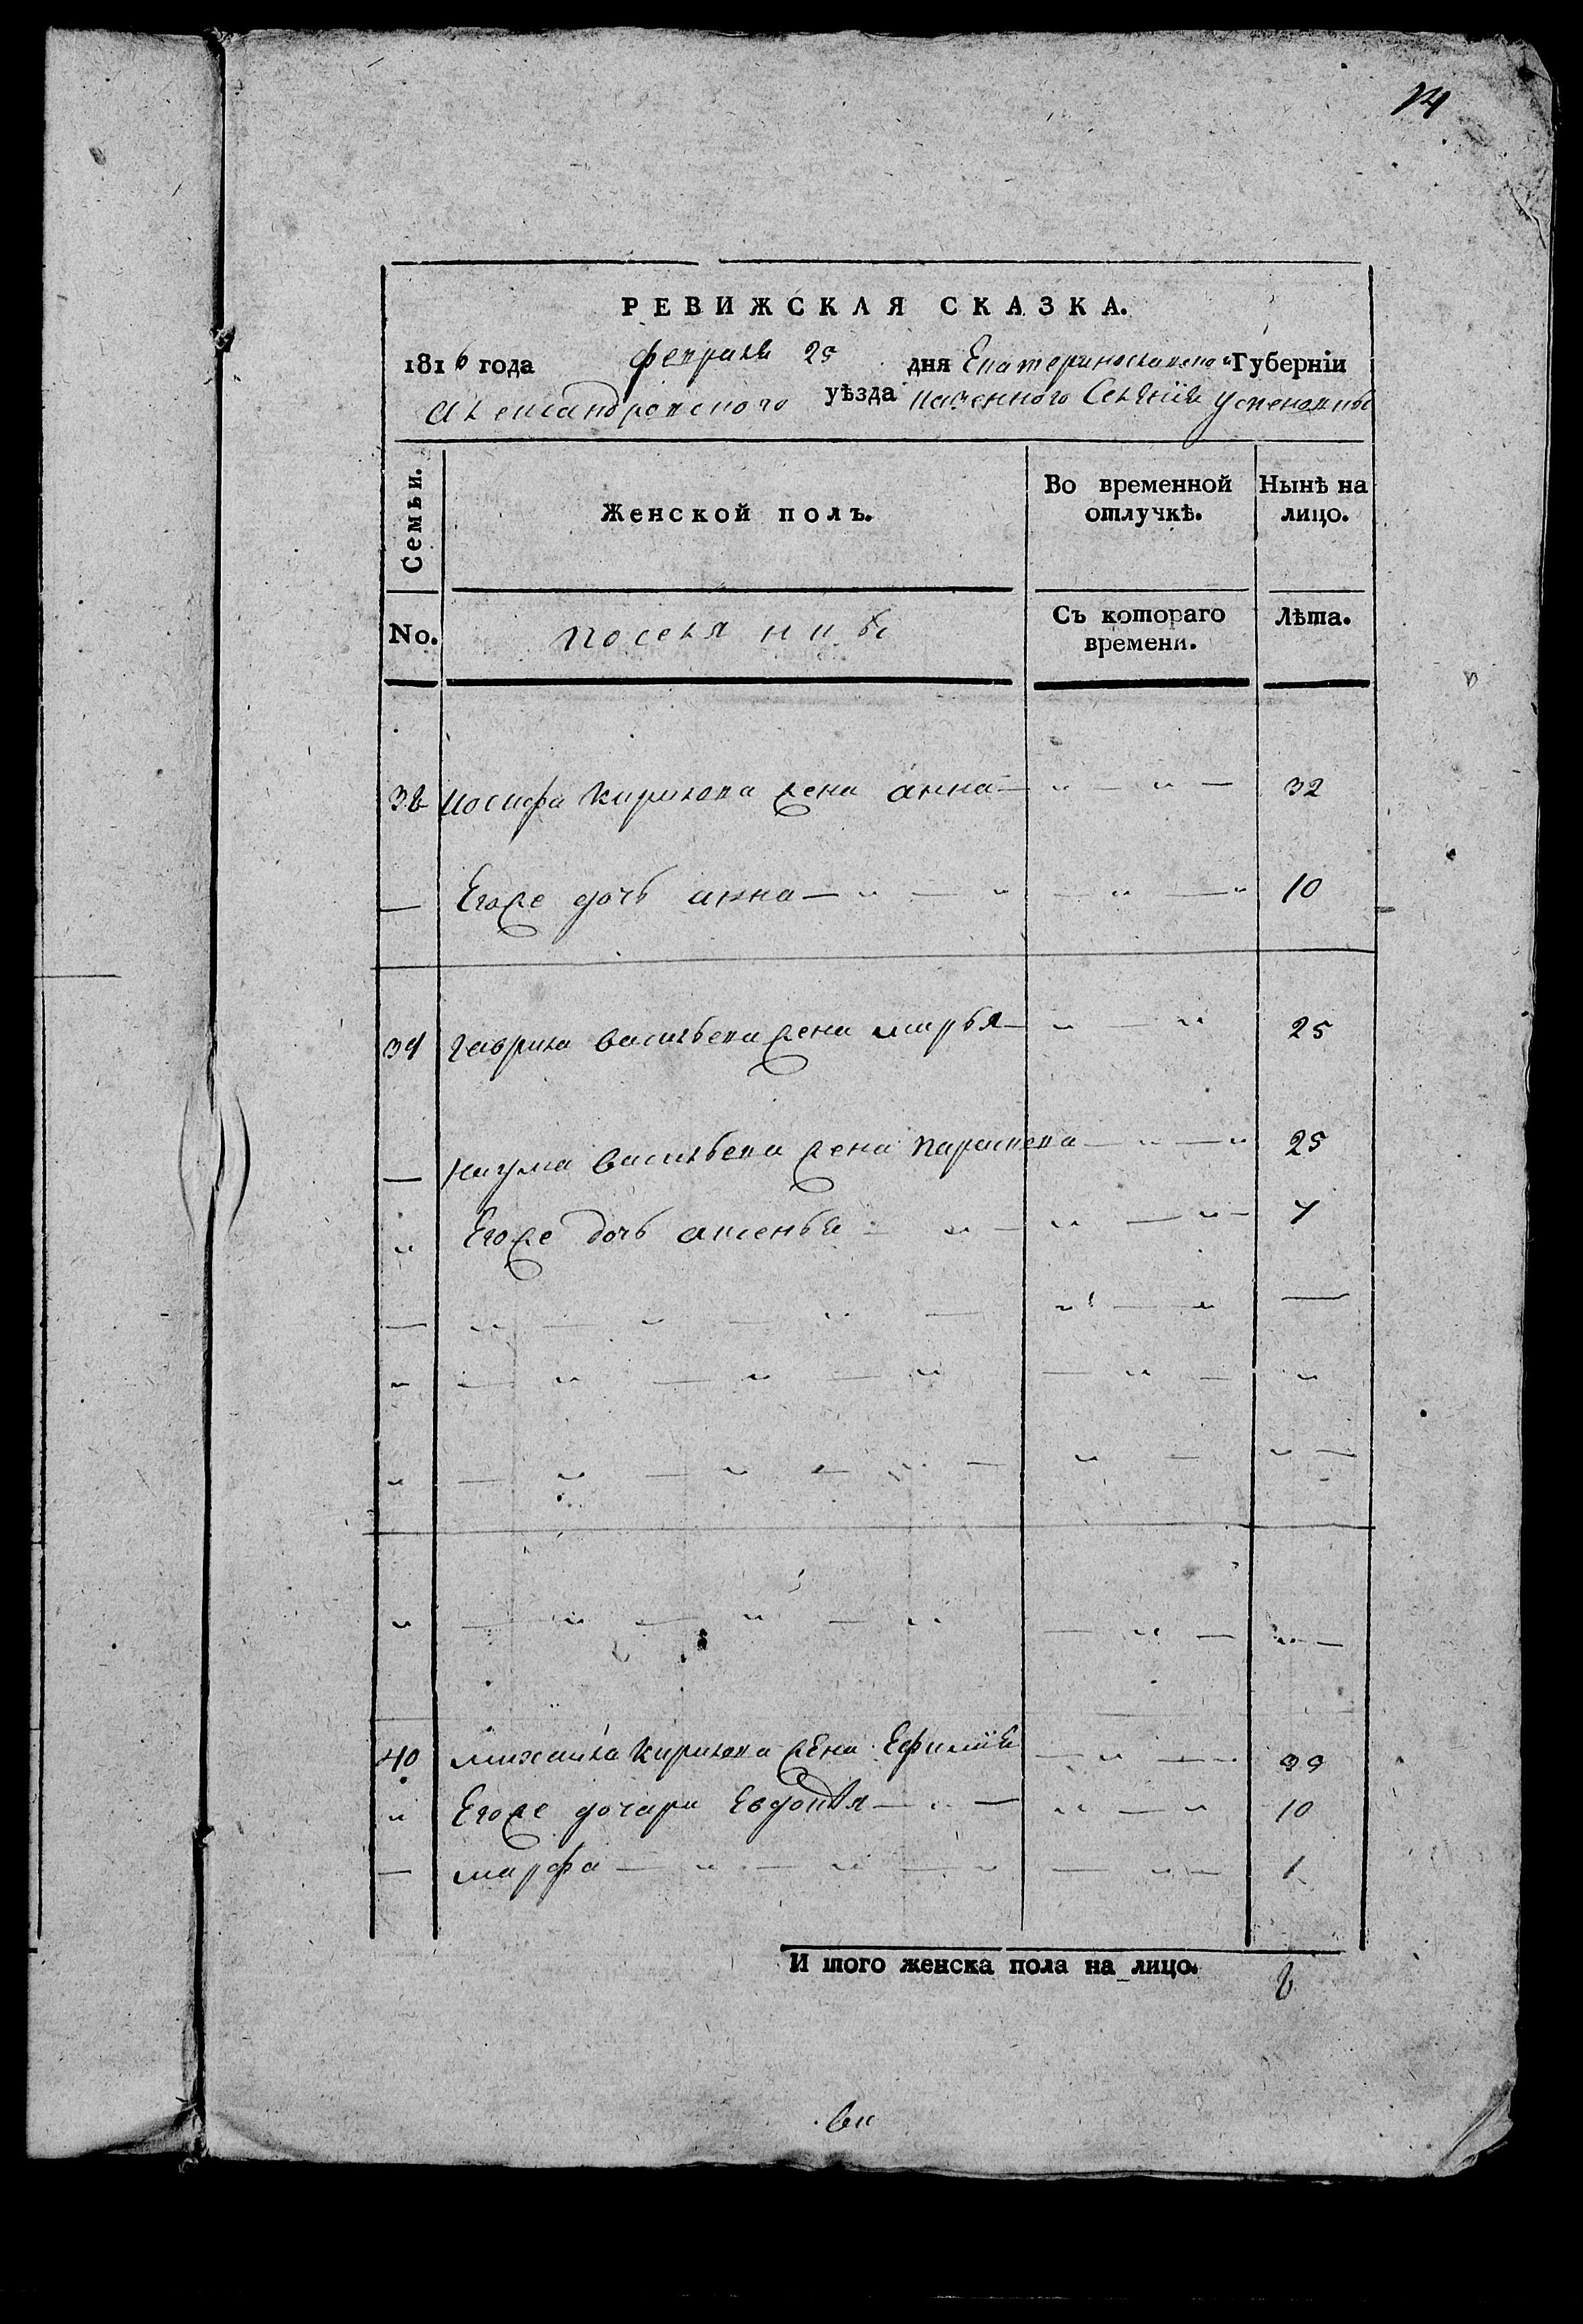 14
РЕВИЖСКАЯ СКАЗКА.
1816 года февраля 25 дня Екатеринославской Губерніи
Александровского уѣзда казенного Селенія Успеновки
Семьи.
Женской полъ.
Во временной отлучкѣ.
Нынѣ на лицо.
No.
поселяники
Съ котораго времени.
Лѣта.
Иосифа Кирилова жена анна — 32
— Егоже дочь анна — 10
39 гаврила васильева жена марья — 25
— наума васильева жена параскева — 25
Егоже дочь аксенья — 7
40 михаила Кирилова жена Ефимія — 39
Егоже дочери Евдокія — 10
— марфа — 1
И того женска пола на лицо. 8